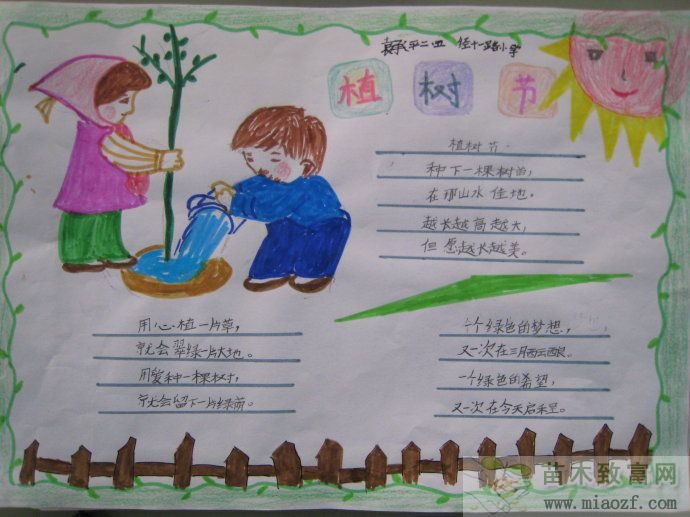 二四 经十一路小学
植树节
植树节
种下一棵树苗,
在那山水佳地。
越长越高越大,
但愿越长越美。
用心植一片草,
就会翠绿一片大地。
用爱种一棵树,
就会留下一片绿荫。
一个绿色的梦想,
又一次在三月酝酿。
一个绿色的希望,
又一次在今天启程。
苗木致富网
www.miaozf.com